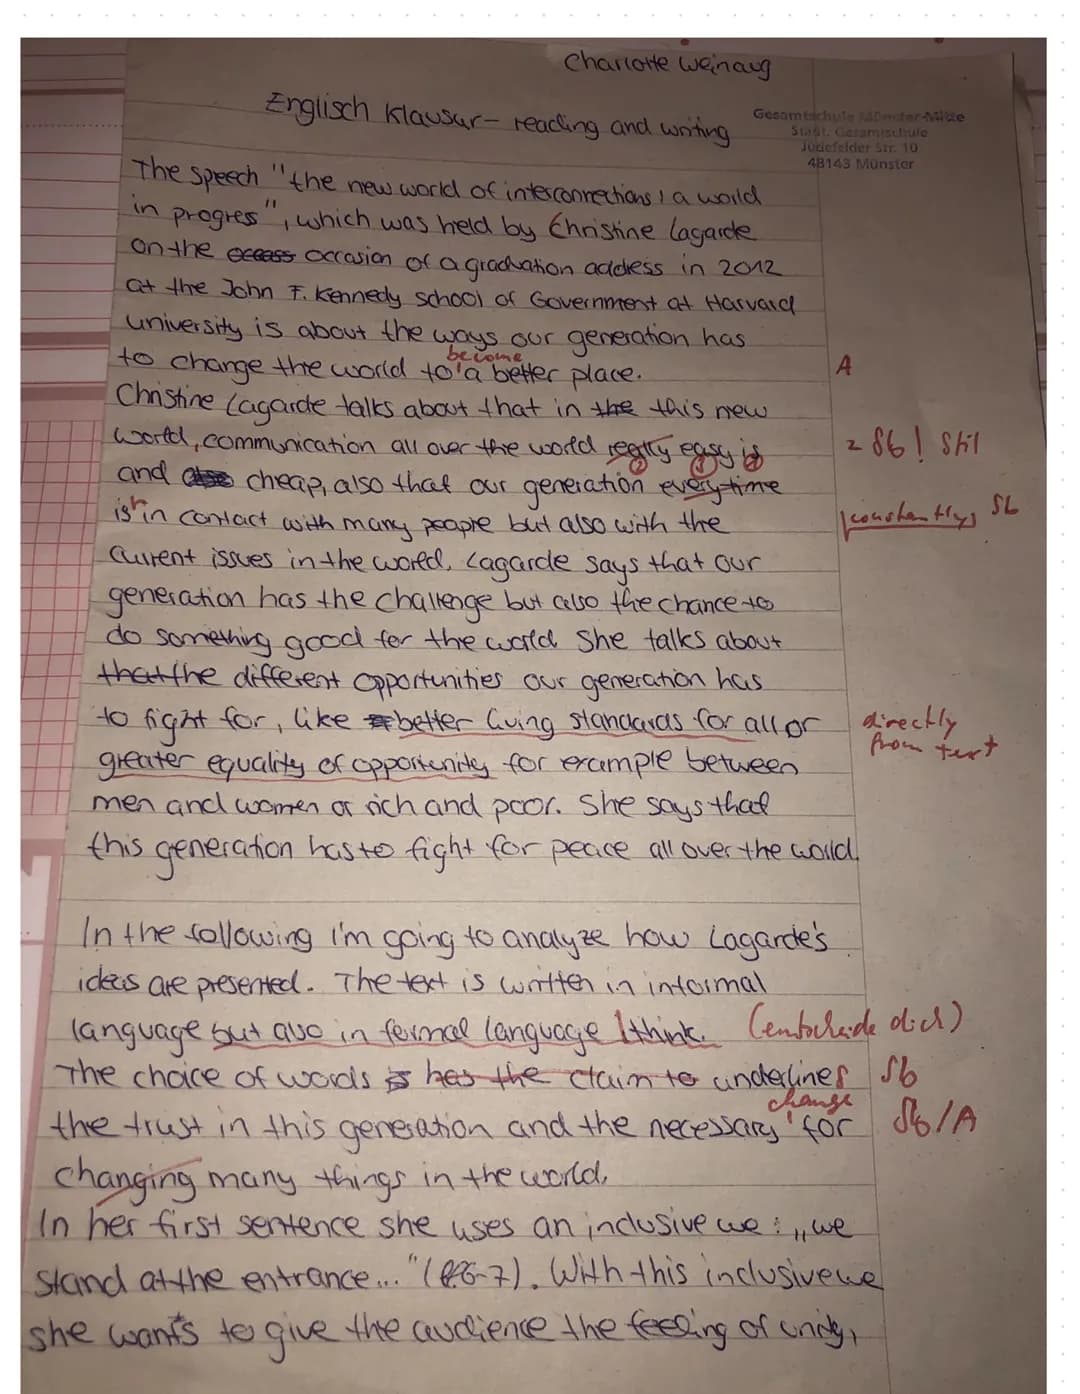 Charlotte Weinaug
Englisch Klausur - reading and writing
Gesamtschule Münster-Mitte
Städt. Gesamtschule
Jüdefelder Str. 10
48143 Münster
The speech "the new world of interconnections, a world
in progres", which was held by Christine Lagarde
on the occasion of a graduation address in 2012
at the John F. Kennedy school of Government at Harvard
university is about the ways our generation has
become
to change the world to a better place.
A
Christine Lagarde talks about that in the this new
world, communication all over the world really easy is
2 Sb! Stil
and cheap, also that our generation every time
is in contact with many people but also with the
constantly, Sb
current issues in the world. Lagarde says that our
generation has the challenge but also the chance to
do something good for the world She talks about
that the different opportunities our generation has
to fight for, like better living standards for all or
directly
from text
greater equality of opportunity for example between
men and women or rich and poor. She says that
this generation has to fight for peace all over the world.
In the following I'm going to analyze how Lagarde's
ideas are presented. The text is written in informal
language but also in formal language I think. (entscheide dich)
The choice of words is has the claim to underlines
Sb
change
the trust in this generation and the necessary for
Sb/A
changing many things in the world.
In her first sentence she uses an inclusive we: „we
stand at the entrance..." 6-7). With this inclusive we
she wants to give the audience the feeling of unity,